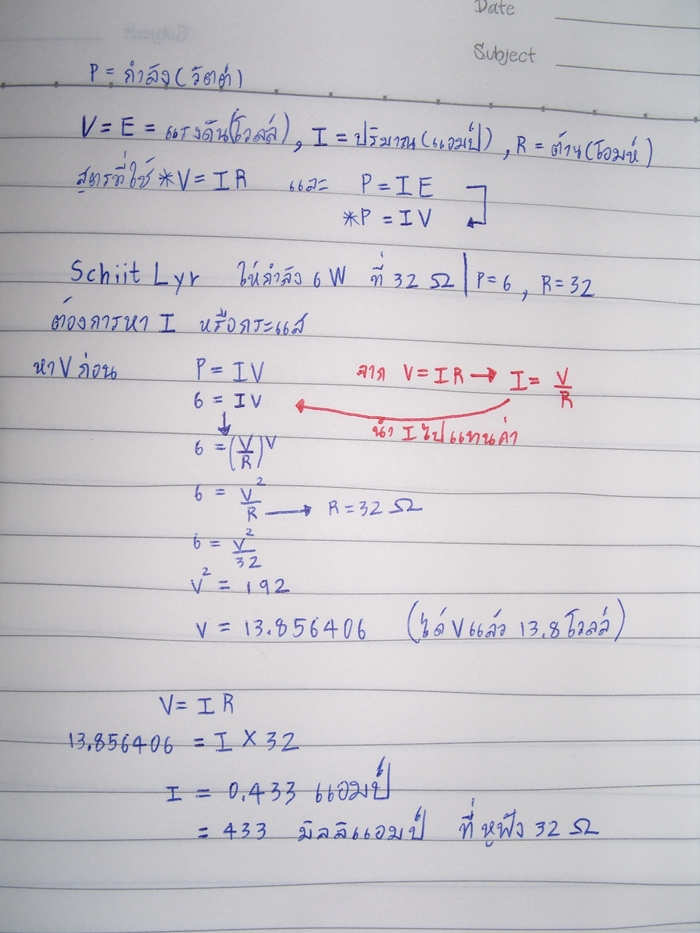 Date
Subject
P = กำลัง (วัตต์)
V = E = แรงดัน (โวลต์), I = ปริมาณ (แอมป์), R = ต้าน (โอมห์)
สูตรที่ใช้ *V = IR และ P = IE
*P = IV
Schiit Lyr ให้กำลัง 6 W ที่ 32 Ω | P = 6, R = 32
ต้องการหา I หรือกระแส
หา V ก่อน P = IV จาก V = IR → I = V/R
6 = IV
นำ I ไปแทนค่า
6 = (V/R)V
6 = V²/R → R = 32 Ω
6 = V²/32
V² = 192
V = 13.856406 (ได้ V แล้ว 13.8 โวลต์)
V = IR
13.856406 = I × 32
I = 0.433 แอมป์
= 433 มิลลิแอมป์ ที่หูฟัง 32 Ω